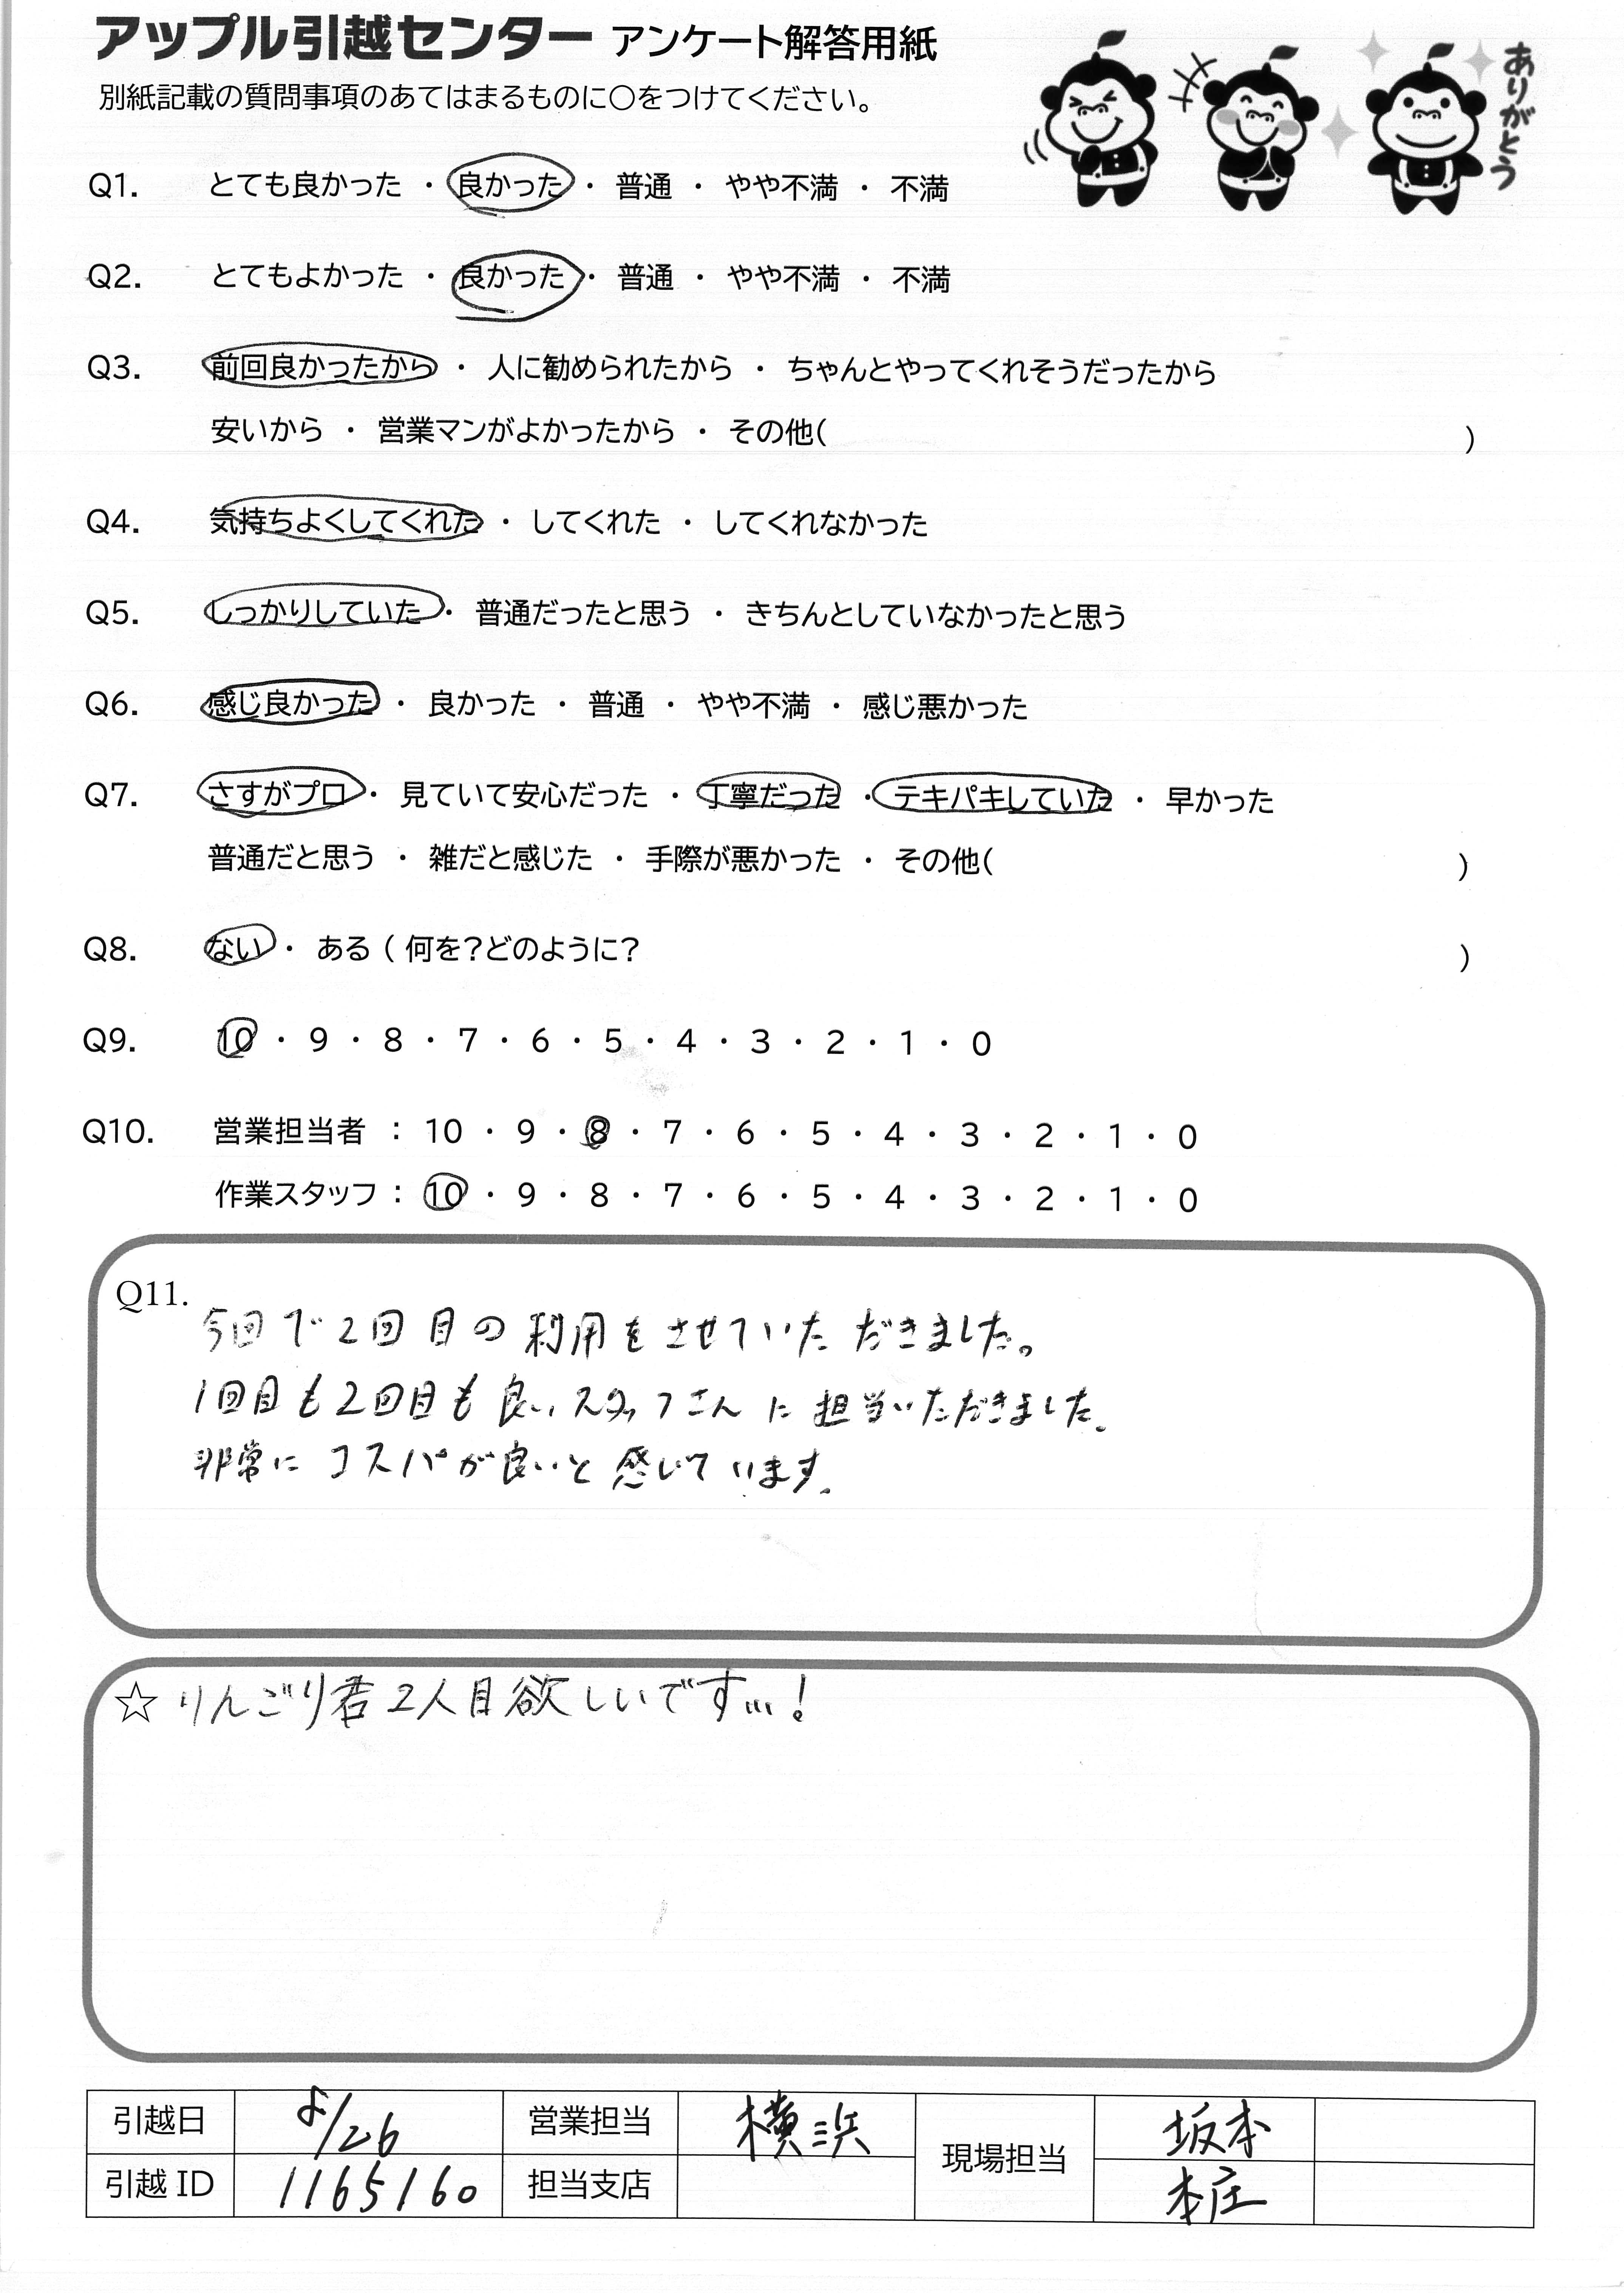 アップル引越センター アンケート解答用紙
別紙記載の質問事項のあてはまるものに○をつけてください。
ありがとう
Q1. とても良かった ・ 良かった ・ 普通 ・ やや不満 ・ 不満
Q2. とてもよかった ・ 良かった ・ 普通 ・ やや不満 ・ 不満
Q3. 前回良かったから ・ 人に勧められたから ・ ちゃんとやってくれそうだったから
安いから ・ 営業マンがよかったから ・ その他( )
Q4. 気持ちよくしてくれた ・ してくれた ・ してくれなかった
Q5. しっかりしていた ・ 普通だったと思う ・ きちんとしていなかったと思う
Q6. 感じ良かった ・ 良かった ・ 普通 ・ やや不満 ・ 感じ悪かった
Q7. さすがプロ ・ 見ていて安心だった ・ 丁寧だった ・ テキパキしていた ・ 早かった
普通だと思う ・ 雑だと感じた ・ 手際が悪かった ・ その他( )
Q8. ない ・ ある ( 何を?どのように? )
Q9. 10 ・ 9 ・ 8 ・ 7 ・ 6 ・ 5 ・ 4 ・ 3 ・ 2 ・ 1 ・ 0
Q10. 営業担当者 : 10 ・ 9 ・ 8 ・ 7 ・ 6 ・ 5 ・ 4 ・ 3 ・ 2 ・ 1 ・ 0
作業スタッフ : 10 ・ 9 ・ 8 ・ 7 ・ 6 ・ 5 ・ 4 ・ 3 ・ 2 ・ 1 ・ 0
Q11.
今回で2回目の利用をさせていただきました。
1回目も2回目も良いスタッフさんに担当いただきました。
非常にコスパが良いと感じています。
☆ りんごり君2人目欲しいです…!
引越日 8/26 営業担当 横浜 現場担当 坂本
引越 ID 1165160 担当支店 本庄